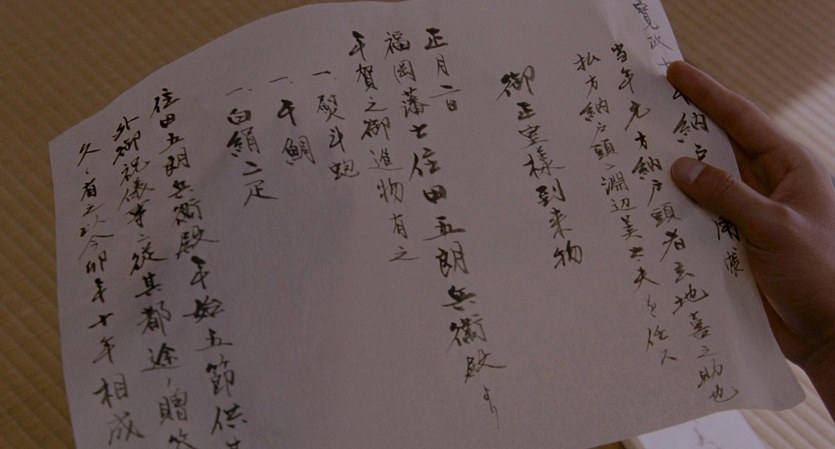 寛政
納戸
当年元方納戸頭者玄地喜之助也
払方納戸頭ハ淵辺美太夫々任ス
御正室様到来物
正月二日
福岡藩士住田五朗兵衛殿より
年賀之御進物有之
一、熨斗蚫
一、干鯛
一、白絹二疋
住田五朗兵衛殿年始五節供
外御祝儀事ニ従其都途、贈答
久々有之以今卯年十年相成